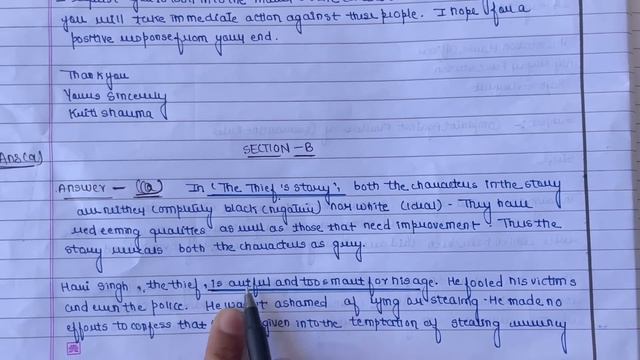 you will take immediate action against these people. I hope for a
positive response from your end.
Thank you
Yours sincerely
Kriti sharma
SECTION-B
Ans(a)
Answer - (a) In 'The Thief's story', both the characters in the story
are neither completely black (negative) nor white (ideal) - They have
redeeming qualities as well as those that need improvement. Thus the
story reveals both the characters as grey.
Hari singh, the thief, is artful and too smart for his age. He fooled his victims
and even the police. He wasn't ashamed of lying or stealing. He made no
efforts to confess that given into the temptation of stealing money